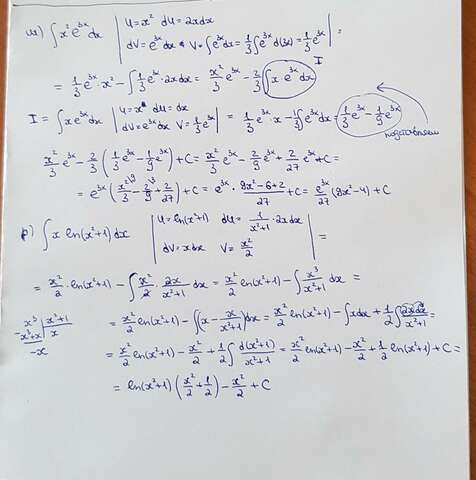 ш) ∫ x² e^{3x} dx | u = x² du = 2x dx
dv = e^{3x} dx v = ∫ e^{3x} dx = 1/3 ∫ e^{3x} d(3x) = 1/3 e^{3x} | =
= 1/3 e^{3x} · x² - ∫ 1/3 e^{3x} · 2x dx = x²/3 e^{3x} - 2/3 ∫ x e^{3x} dx I
I = ∫ x e^{3x} dx | u = x du = dx
dv = e^{3x} dx v = 1/3 e^{3x} | = 1/3 e^{3x} · x - 1/3 ∫ e^{3x} dx = 1/3 e^{3x} - 1/9 e^{3x}
подставляем
x²/3 e^{3x} - 2/3 (1/3 e^{3x} - 1/9 e^{3x}) + C = x²/3 e^{3x} - 2/9 e^{3x} + 2/27 e^{3x} + C =
= e^{3x} (x²/3 - 2/9 + 2/27) + C = e^{3x} · (9x² - 6 + 2)/27 + C = e^{3x}/27 (9x² - 4) + C
р) ∫ x ln(x²+1) dx | u = ln(x²+1) du = 1/(x²+1) · 2x dx
dv = x dx v = x²/2 | =
= x²/2 · ln(x²+1) - ∫ x²/2 · 2x/(x²+1) dx = x²/2 ln(x²+1) - ∫ x³/(x²+1) dx =
x³ | x²+1
- x³+x | x
-x
= x²/2 ln(x²+1) - ∫ (x - x/(x²+1)) dx = x²/2 ln(x²+1) - ∫ x dx + 1/2 ∫ 2x dx/(x²+1) =
= x²/2 ln(x²+1) - x²/2 + 1/2 ∫ d(x²+1)/(x²+1) = x²/2 ln(x²+1) - x²/2 + 1/2 ln(x²+1) + C =
= ln(x²+1) (x²/2 + 1/2) - x²/2 + C